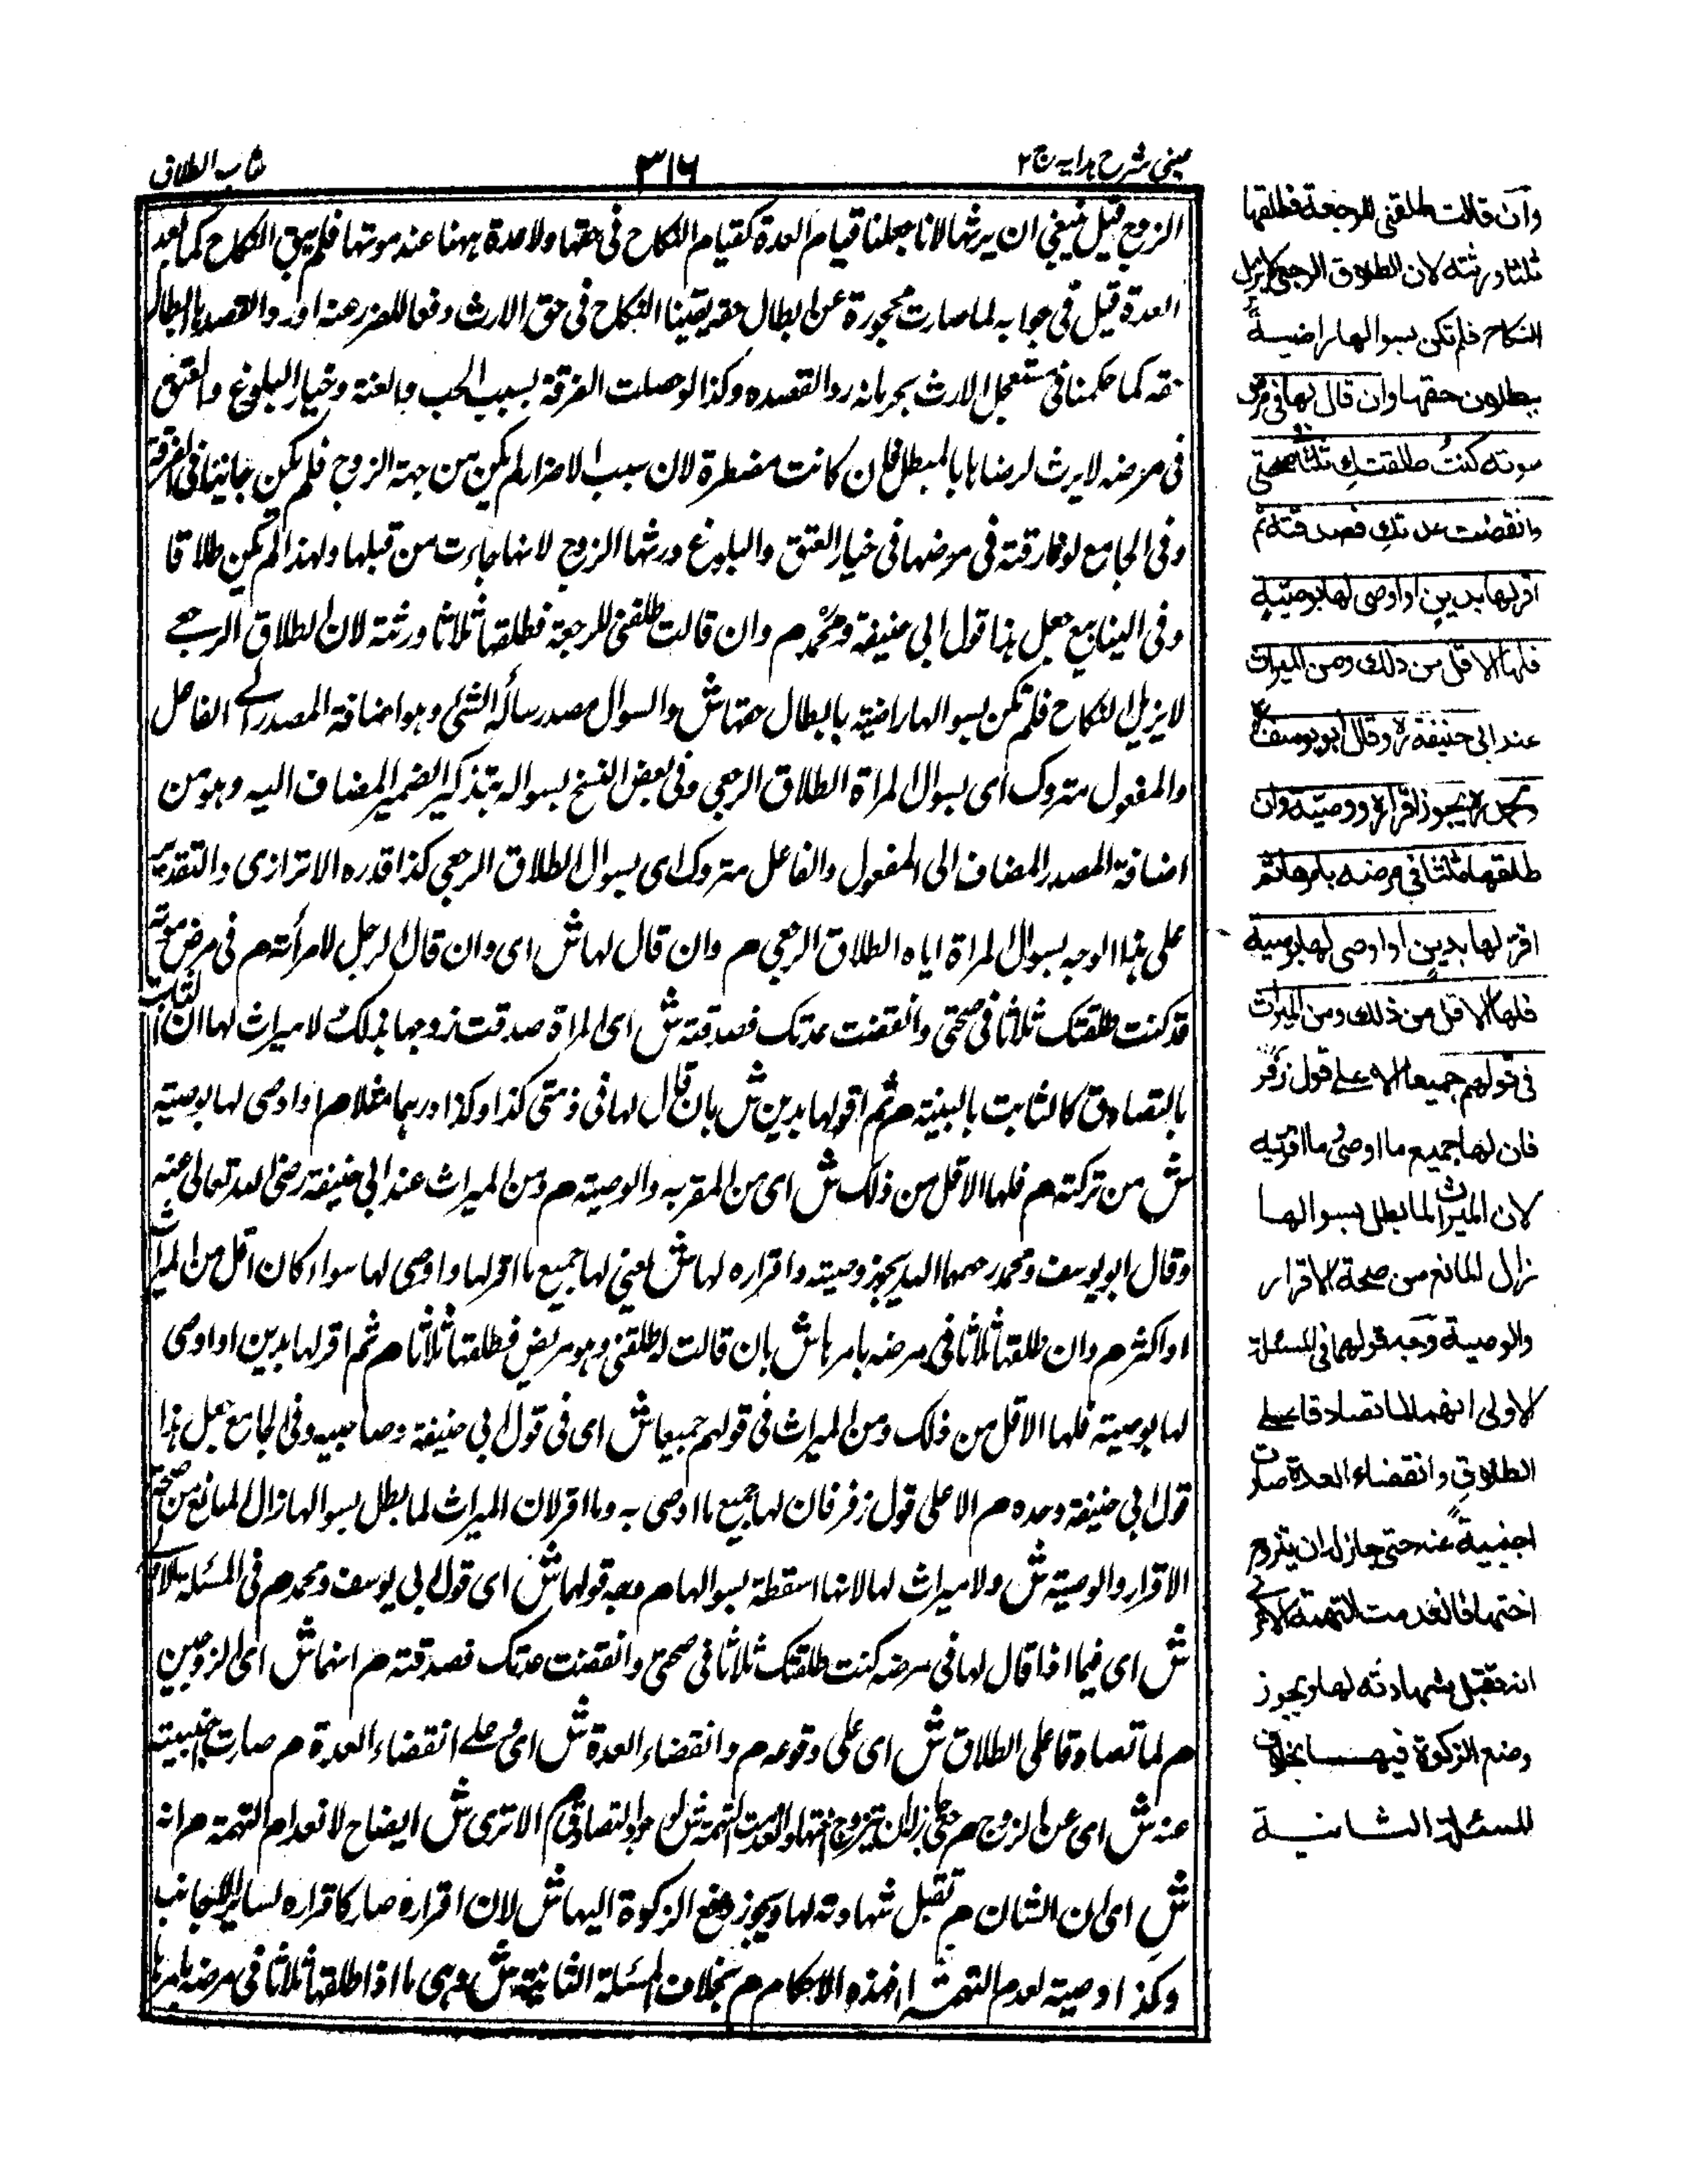 عینی شرح ہدایہ ج ۲
۳۱۶
کتاب الطلاق
الزوج قیل ینبغی ان یرثها لانا جعلنا قیام العدة کقیام النکاح فی حقها ولا عدة ههنا عند موتها فلم یبق النکاح کما بعد
العدة قیل فی جوابه لما صارت محجورة عن ابطال حقه بقینا النکاح فی حق الارث دفعا للضرر عنه اور دالقصد بابطال
حقه کما حکمنا فی مستعجل الارث بحرمانه رد القصده وکذا لو حصلت الفرقة بسبب الجب والعنة وخیار البلوغ والعتق
فی مرضه لا یرث لرضاها بالمبطل فان کانت مضطرة لان سبب الاضرار لم یکن من جهة الزوج فلم یکن جانیا فی الفرقة
وفی الجامع لو فارقته فی مرضها فی خیار العتق والبلوغ ورثها الزوج لانها جاءت من قبلها ولهذا لم یکن طلاقا
وفی الینابیع جعل هذا قول ابی حنیفة ومحمد م وان قالت طلقنی للرجعة فطلقها ثلاثا ورثته لان الطلاق الرجعی
لا یزیل النکاح فلم تکن بسوالها راضیة بابطال حقها ش والسوال مصدر سأله الشئ وهو اضافة المصدر الی الفاعل
والمفعول متروک ای بسوال المراة الطلاق الرجعی وفی بعض النسخ بسواله بتذکیر الضمیر المضاف الیه وهو من
اضافة المصدر المضاف الی المفعول والفاعل متروک ای بسوال الطلاق الرجعی کذا قدره الاترازی والتقدیر
علی هذا الوجه بسوال المراة ایاه الطلاق الرجعی م وان قال لها ش ای وان قال الرجل لامرأته م فی مرض موته
قد کنت طلقتک ثلاثا فی صحتی وانقضت عدتک فصدقته ش ای المراة صدقت زوجها بذلک لا میراث لها ان الثابت
بالتصادق کالثابت بالبینة م ثم اقر لها بدین ش بان قال لها فی ذمتی کذا وکذا درهما مثلا م او اوصی لها بوصیة
ش من ترکته م فلها الاقل من ذلک ش ای من المقر به والوصیة م ومن المیراث عند ابی حنیفة رضی الله تعالی عنه
وقال ابو یوسف ومحمد رحمهما الله یجوز وصیته واقراره لها ش یعنی لها جمیع ما اقر لها واوصی لها سواء کان اقل من المیراث
او اکثر م وان طلقها ثلاثا فی مرضه بامرها ش بان قالت له طلقنی وهو مریض فطلقها ثلاثا م ثم اقر لها بدین او اوصی
لها بوصیة فلها الاقل من ذلک ومن المیراث فی قولهم جمیعا ش ای فی قول ابی حنیفة وصاحبیه وفی الجامع جعل هذا
قول ابی حنیفة وحده م الا علی قول زفر فان لها جمیع ما اوصی به وما اقر لان المیراث لما بطل بسوالها زال المانع من صحة
الاقرار والوصیة ش ولا میراث لها لانها اسقطة بسوالها م وجه قولها ش ای قول ابی یوسف ومحمد م فی المسئلة الاولی
ش ای فیما اذا قال لها فی مرضه کنت طلقتک ثلاثا فی صحتی وانقضت عدتک فصدقته م انهما ش ای الزوجین
م لما تصادقا علی الطلاق ش ای علی وقوعه م وانقضاء العدة ش ای علی انقضاء العدة م صارت اجنبیة
عنه ش ای عن الزوج م حتی جاز له ان یتزوج اختها وانعدمت التهمة ش لوجود التصادق م الا تری ش ایضاح لانعدام التهمة م انه
ش ای ان الشان م تقبل شهادته لها ویجوز وضع الزکوة الیها ش لان اقراره صار کاقراره لسایر الاجانب
وکذا وصیته لعدم التهمة فی هذه الاحکام م بخلاف المسئلة الثانیة ش وهی ما اذا طلقها ثلاثا فی مرضه بامرها
وان قالت طلقنی للرجعة فطلقها
ثلثا ورثته لان الطلاق الرجعی لا یزیل
النکاح فلم تکن بسوالها راضیة
ببطلان حقها وان قال لها فی مرض
موته کنتُ طلقتکِ ثلثا فی صحتی
وانقضت عدتکِ فصدقته ثم
اقر لها بدینٍ او اوصی لها بوصیة
فلها الاقل من ذلک ومن المیراث
عند ابی حنیفةؒ وقال ابو یوسفؒ
ومحمدؒ یجوز اقراره ووصیته وان
طلقها ثلثا فی مرضه بامرها ثم
اقر لها بدینٍ او اوصی لها بوصیة
فلها الاقل من ذلک ومن المیراث
فی قولهم جمیعا الا علی قول زفر
فان لها جمیع ما اوصی وما اقر به
لان المیراث لما بطل بسوالها
زال المانع من صحة الاقرار
والوصیة وجه قولهما فی المسئلة
الاولی انهما لما تصادقا علی
الطلاق وانقضاء العدة صارت
اجنبیة عنه حتی جاز له ان یتزوج
اختها فانعدمت التهمة الا تری
انه تقبل شهادته لها ویجوز
وضع الزکوة فیها بخلاف
المسئلة الثانیة